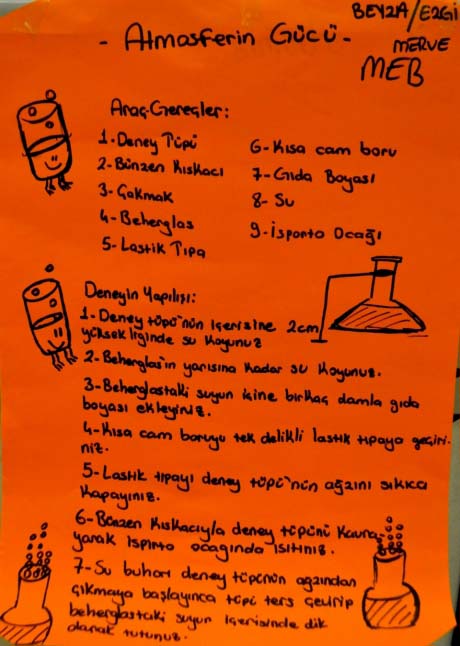 BEYZA/EZGİ
- Atmosferin Gücü -
MERVE
MEB
Araç-Gereçler:
1- Deney Tüpü
2- Bünzen Kıskacı
3- Çakmak
4- Beherglas
5- Lastik Tıpa
6- Kısa cam boru
7- Gıda Boyası
8- Su
9- İsporto Ocağı
Deneyin Yapılışı:
1- Deney tüpü'nün içerisine 2cm
yüksekliğinde su koyunuz
2- Beherglas'ın yarısına kadar su koyunuz.
3- Beherglastaki suyun içine birkaç damla gıda
boyası ekleyiniz.
4- Kısa cam boruyu tek delikli lastik tıpaya geçiri-
niz.
5- Lastik tıpayı deney tüpü'nün ağzını sıkıca
kapayınız.
6- Bünzen kıskacıyla deney tüpünü kavra-
yarak ispirto ocağında ısıtınız.
7- Su buharı deney tüpünün ağzından
çıkmaya başlayınca tüpü ters çevirip
beherglastaki suyun içerisinde dik
olarak tutunuz.